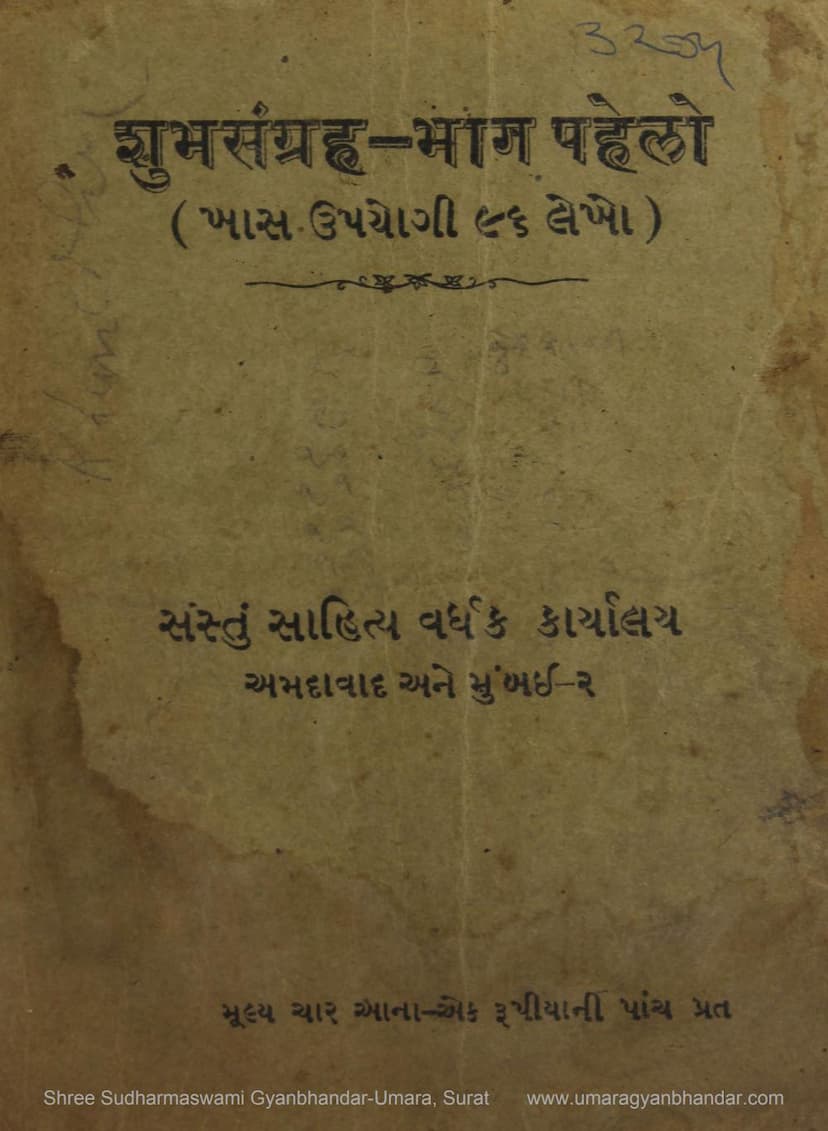 शुभसंग्रह-भाग पहेलो
( ખાસ ઉપયોગી ૯૬ લેખો )
સસ્તું સાહિત્ય વર્ધક કાર્યાલય
અમદાવાદ અને મુંબઈ-૨
મૂલ્ય ચાર આના-એક રૂપીયાની પાંચ પ્રત
Shree Sudharmaswami Gyanbhandar-Umara, Surat www.umaragyanbhandar.com